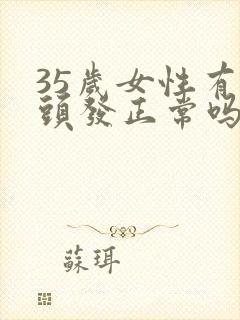 35歲女性有
頭發正常嗎
蘇珥